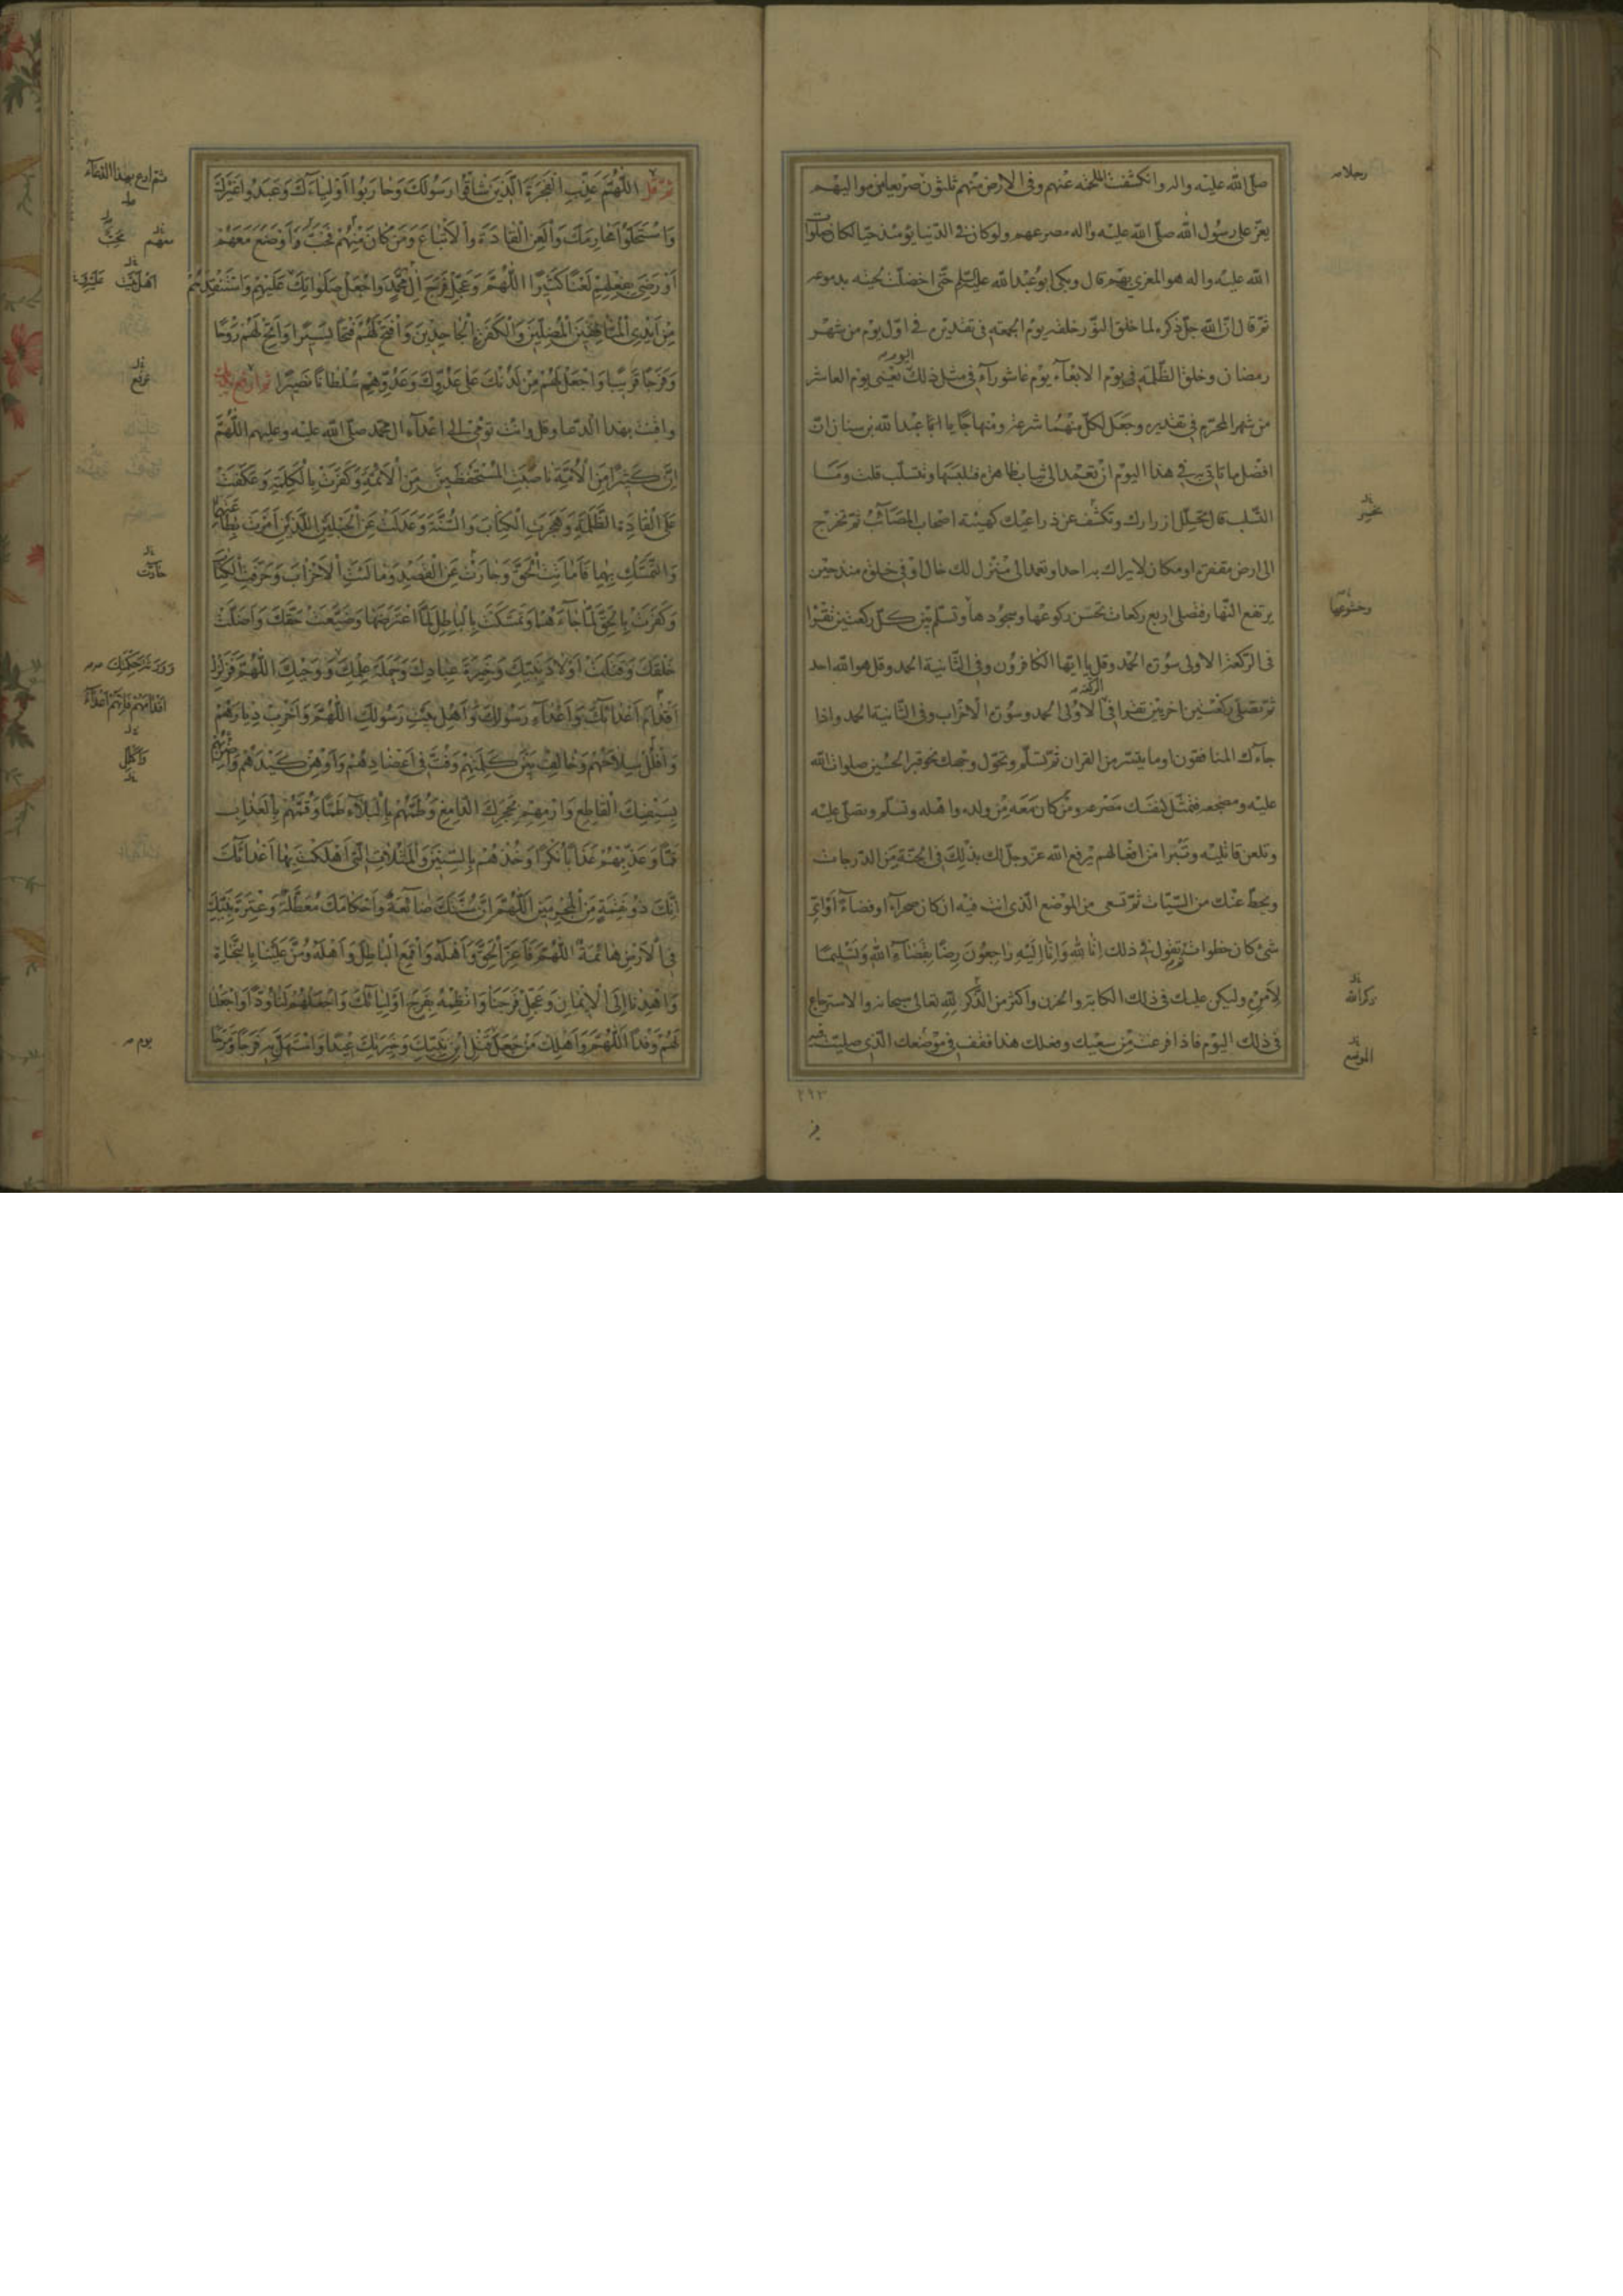 صلّى الله عليه واله وانكشفت الملحمة عنهم وفى الارض منهم ثلثون صريعا من مواليهم
يعزّ على رسول الله صلّى الله عليه واله مصرعهم ولو كان فى الدّنيا يومئذ حيّا لكان صلوات
الله عليه واله هو المعزى بهم قال وبكى ابو عبد الله عليه السّلم حتّى اخضلّت لحيته بدموعه
ثمّ قال انّ الله جلّ ذكره لما خلق النّور خلقه يوم الجمعة فى تقديره فى اوّل يوم من شهر
رمضان وخلق الظّلمة فى يوم الاربعآء يوم عاشورآء فى مثل ذلك اليوم يعنى يوم العاشر
من شهر المحرّم فى تقديره وجعل لكلّ منهما شرعة ومنهاجا يا عبد الله بن سنان انّ
افضل ما تاتى به فى هذا اليوم ان تعمد الى ثياب طاهرة فتلبسها وتتسلّب قلت وما
التّسلب قال تحلّل ازرارك وتكشف عن ذراعيك كهيئة اصحاب المصآئب ثمّ تخرج
الى ارض مقفرة او مكان لا يراك به احد او تعمد الى منزل لك خال او فى خلوة منذ حين
يرتفع النّهار فتصلى اربع ركعات تحسن ركوعها وسجودها وتسلم بين كلّ ركعتين تقرا
فى الركعة الاولى سورة الحمد وقل يا ايّها الكافرون وفى الثّانية الحمد وقل هو الله احد
ثمّ تصلى ركعتين اخريين تقرا فى الركعة الاولى الحمد وسورة الاحزاب وفى الثّانية الحمد واذا
جآءك المنافقون او ما يتيسّر من القران ثمّ تسلّم وتحوّل وجهك نحو قبر الحسين صلوات الله
عليه ومضجعه فتمثّل لنفسك مصرعه ومن كان معه من ولده واهله وتسلّم وتصلّى عليه
وتلعن قاتليه وتتبرا من افعالهم يرفع الله عزّ وجلّ لك بذلك فى الجنّة من الدّرجات
ويحطّ عنك من السّيّات ثمّ تسعى من الموضع الّذى انت فيه ان كان صحرآء او فضآء او اىّ
شئ كان خطوات تقول فى ذلك إنّا لله وإنّا إليه راجعون رضا بقضآء الله وتسليما
لأمره وليكن عليك فى ذلك الكابة والحزن واكثر من الذّكر لله تعالى سبحانه والاسترجاع
فى ذلك اليوم فاذا فرغت من سعيك وفعلك هذا فقف فى موضعك الّذى صليت فيه
رجلا
تحسن
وخشوعها
ذكر الله
الموضع
٢٩٣
ثمّ قل اللّهمّ عذّب الفجرة الّذين شاقّوا رسولك وحاربوا اوليآءك وعبدوا غيرك
واستحلّوا محارمك والعن القادة والاتباع ومن كان منهم فخبّ واوضع معهم
او رضى بفعلهم لعنا كثيرا اللّهمّ وعجّل فرج ال محمّد واجعل صلواتك عليهم واستنقذهم
من ايدى المنافقين المضلّين والكفرة الجاحدين وافتح لهم فتحا يسيرا واتح لهم روحا
وفرجا قريبا واجعل لهم من لدنك على عدوّك وعدوّهم سلطانا نصيرا ثم ارفع يديك
واقنت بهذا الدّعا وقل وانت تومئ الى اعدآء ال محمّد صلّى الله عليه وعليهم اللّهمّ
انّ كثيرا من الامّة ناصبت المستحفظين من الائمّة وكفرت بالكلمة وعكفت
على القادة الظّلمة وهجرت الكتاب والسّنّة وعدلت عن الحبلين اللّذين امرت بطاعتهما
والتّمسّك بهما فاماتت الحقّ وحادت عن القصد ومالئت الاحزاب وحرّفت الكتاب
وكفرت بالحقّ لمّا جآءها وتمسّكت بالباطل لمّا اعترضها وضيّعت حقّك واضلّت
خلقك وقتلت اولاد نبيّك وخيرة عبادك وحملة علمك وورثة وحيك اللّهمّ فزلزل
اقدام اعدائك واعدآء رسولك واهل بيت رسولك اللّهمّ واخرب ديارهم
وافلل سلاحهم وخالف بين كلمتهم وفتّ فى اعضادهم واوهن كيدهم واضربهم
بسيفك القاطع وارمهم بحجرك الدّامغ وطمّهم بالبلآء طمّا وقمّهم بالعذاب
قمّا وعذّبهم عذابا نكرا وخذهم بالسّنين والمثلات الّتى اهلكت بها اعدائك
انّك ذو نقمة من المجرمين اللّهمّ انّ سنّتك ضآئعة واحكامك معطّلة وعترة نبيّك
فى الارض هائمة اللّهمّ فاعن الحقّ واهله واقمع الباطل واهله ومنّ علينا بالنّجاة
واهدنا الى الايمان وعجّل فرجنا وانظمه بفرج اوليائك واجعلهم لنا ودّا واجعلنا
لهم وفدا اللّهمّ واهلك من جعل قتل ابن نبيّك وخيرتك عيدا واستهلّ به فرحا ومرحا
ثم ادع بهذا الدّعآء
معهم
اهل بيت
ترفع
حادت
اقدامهم
يوم